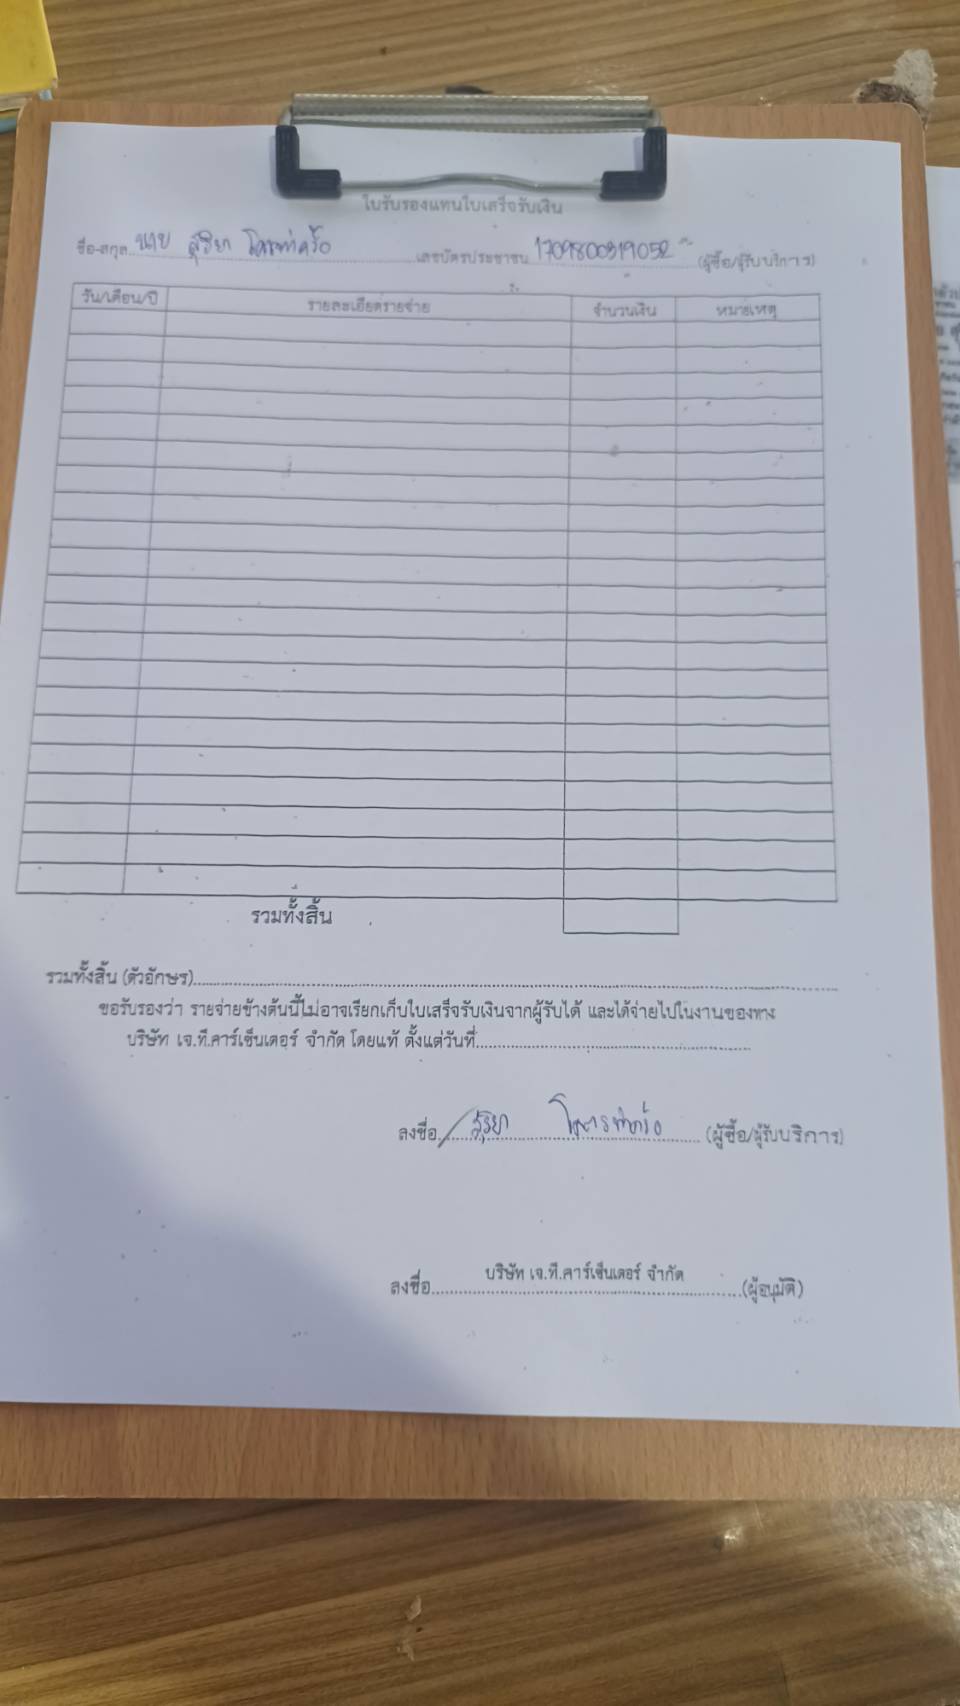 ใบรับรองแทนใบเสร็จรับเงิน
ชื่อ-สกุล นาย สุริยา เลขบัตรประชาชน 1709800319052 (ผู้ซื้อ/ผู้รับบริการ)
วัน/เดือน/ปี รายละเอียดรายจ่าย จำนวนเงิน หมายเหตุ
รวมทั้งสิ้น
รวมทั้งสิ้น (ตัวอักษร)
ขอรับรองว่า รายจ่ายข้างต้นนี้ไม่อาจเรียกเก็บใบเสร็จรับเงินจากผู้รับได้ และได้จ่ายไปในงานของทาง
บริษัท เจ.ที.คาร์เซ็นเตอร์ จำกัด โดยแท้ ตั้งแต่วันที่
ลงชื่อ สุริยา (ผู้ซื้อ/ผู้รับบริการ)
บริษัท เจ.ที.คาร์เซ็นเตอร์ จำกัด
ลงชื่อ (ผู้อนุมัติ)